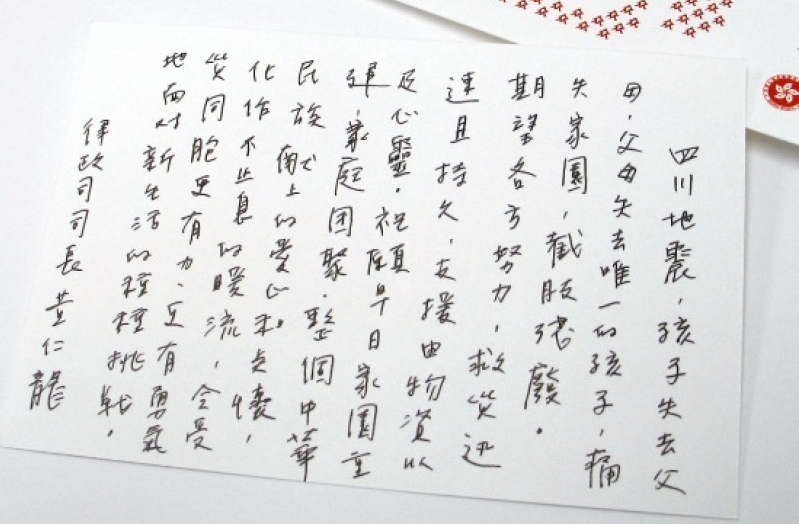 四川地震，孩子失去父
母，父母失去唯一的孩子，痛
失家園，截肢残廢。
期望各方努力，救災迅
速且持久，支援由物資以
及心靈。祝願早日家園重
建，家庭团聚。整個中華
民族献上的愛心和关懷，
化作不止息的暖流，令受
災同胞更有力、更有勇氣
地面对新生活的種種挑戰。
律政司司長黃仁龍